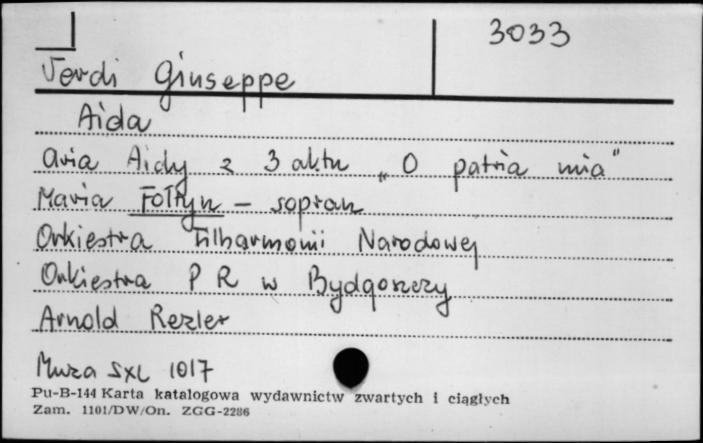 3033
Verdi Giuseppe
Aida
aria Aidy z 3 aktu „O patria mia"
Maria Fołtyn – sopran
Orkiestra Filharmonii Narodowej
Orkiestra P R w Bydgoszczy
Arnold Rezler
Muza SXL 1017
Pu-B-144 Karta katalogowa wydawnictw zwartych i ciągłych
Zam. 1101/DW/On. ZGG-2286